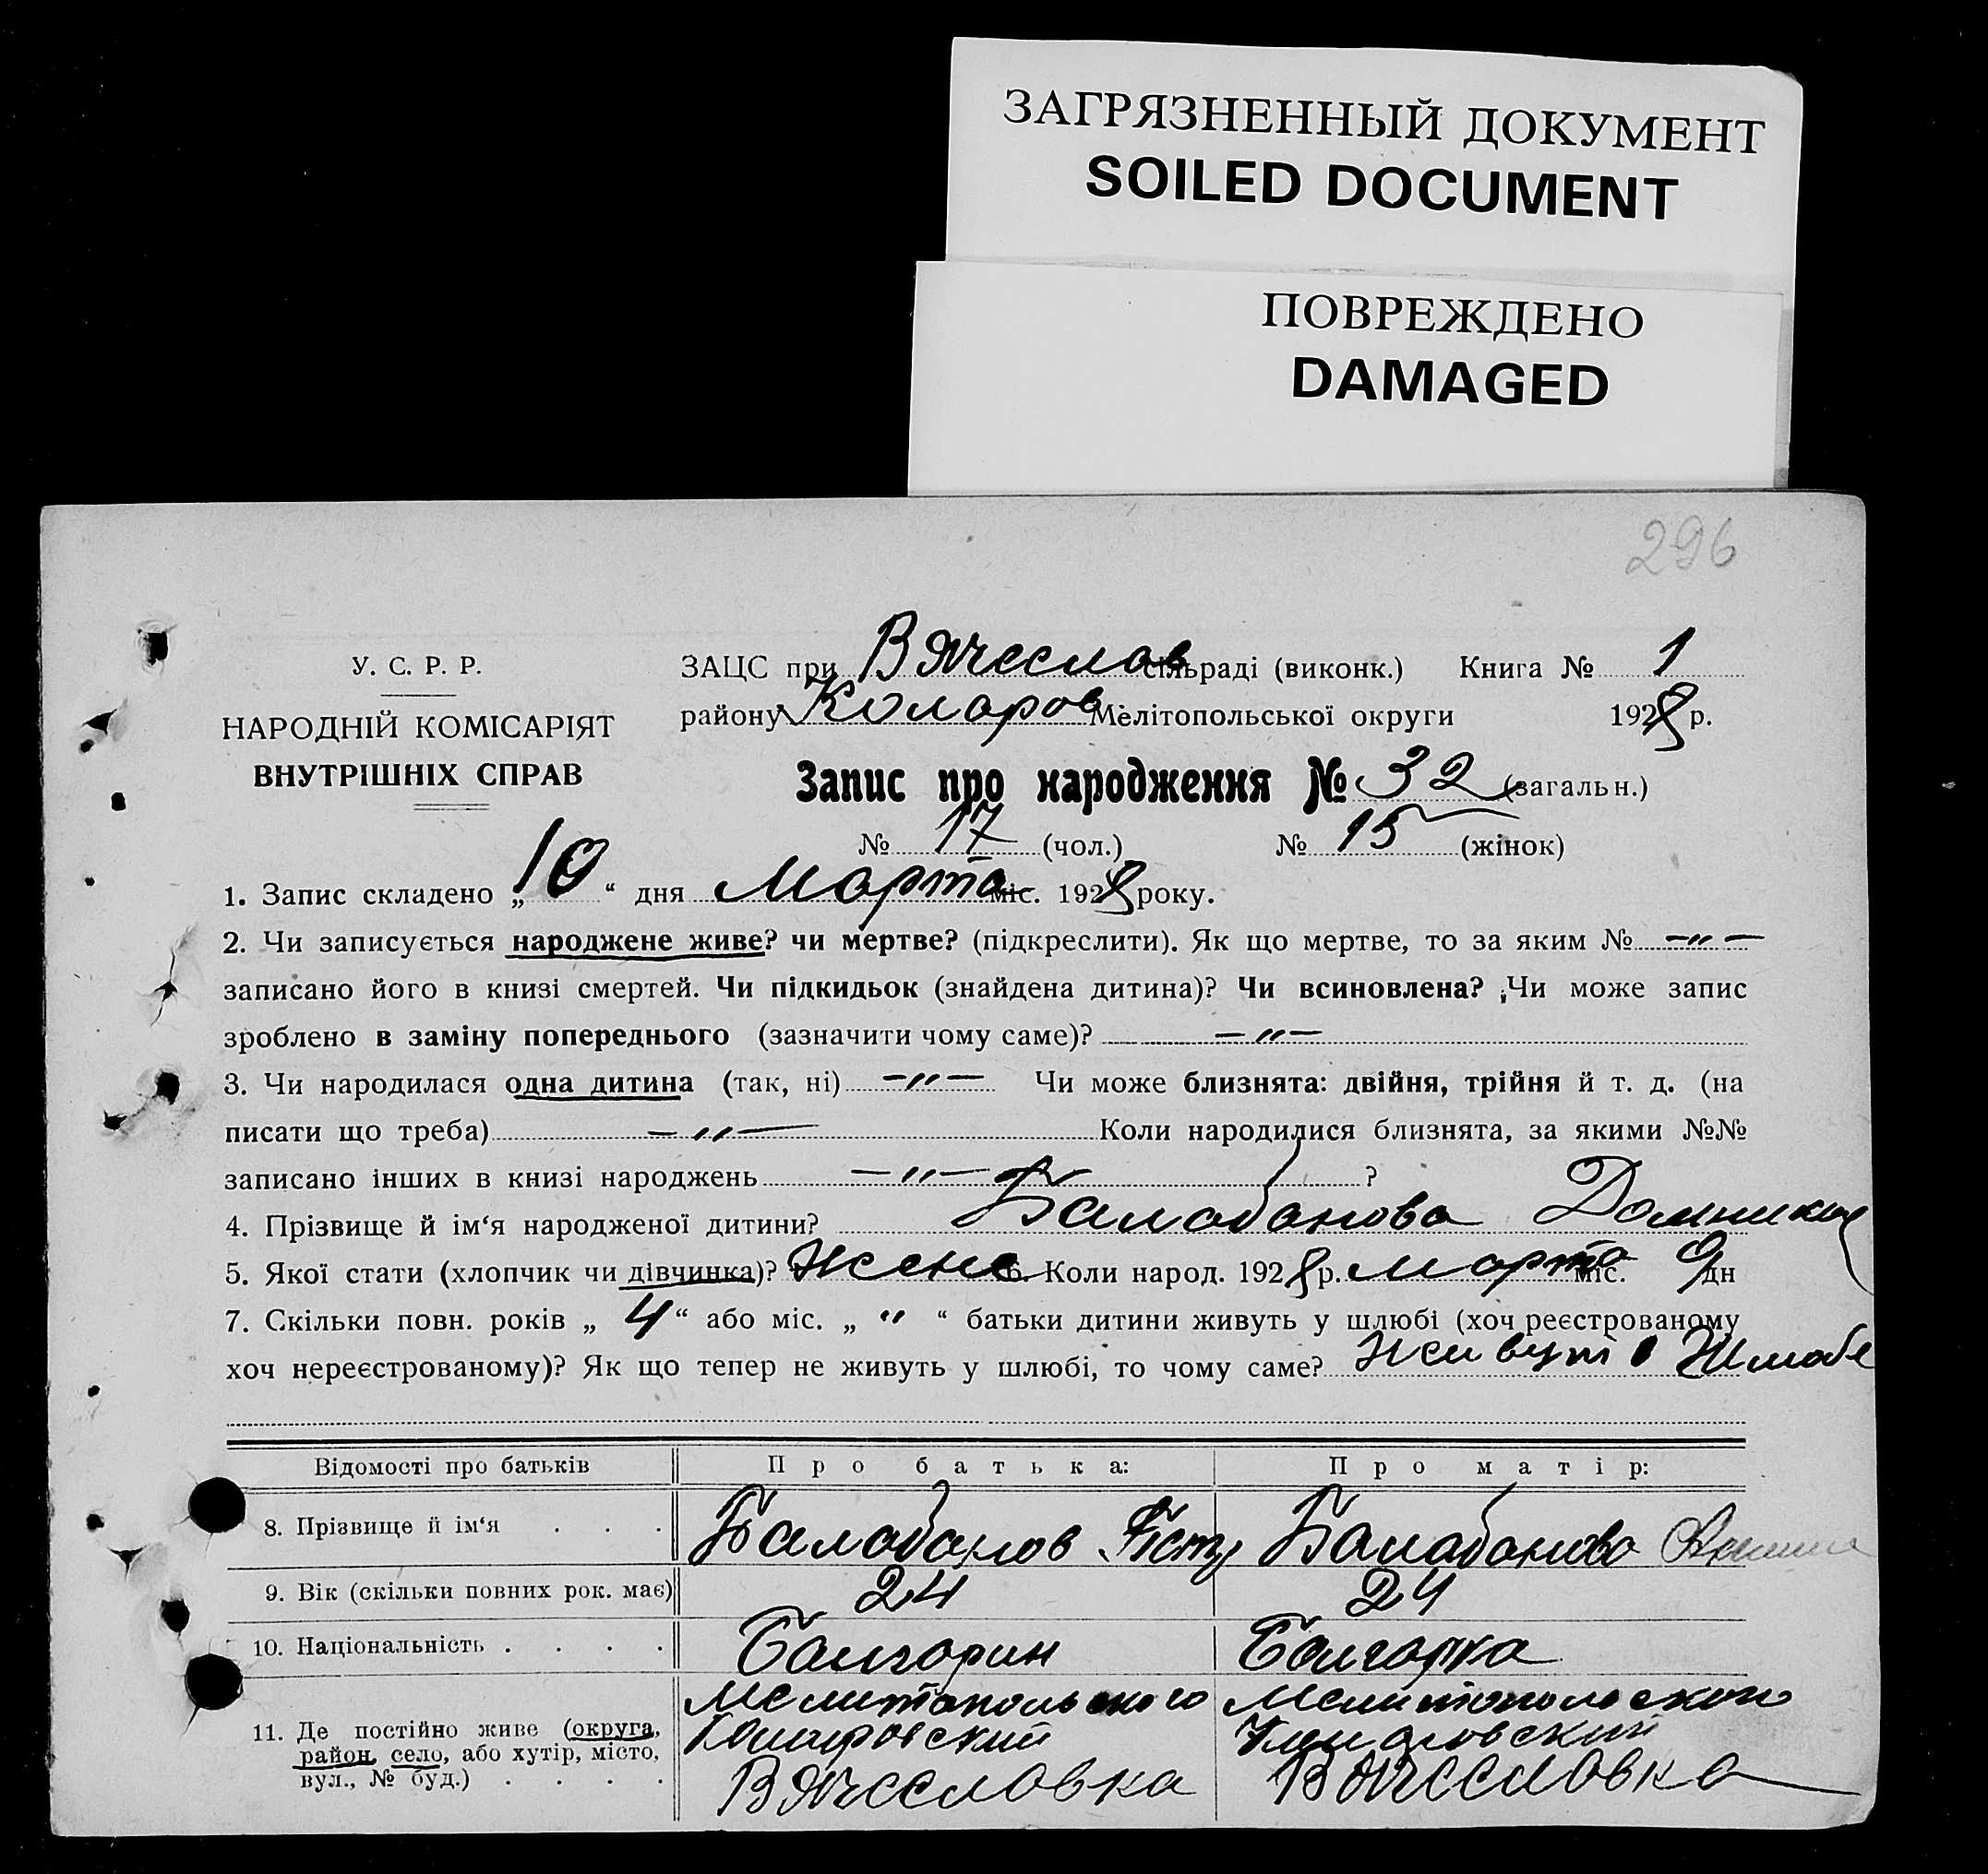 ЗАГРЯЗНЕННЫЙ ДОКУМЕНТ
SOILED DOCUMENT
ПОВРЕЖДЕНО
DAMAGED
296
У. С. Р. Р.
НАРОДНІЙ КОМІСАРІЯТ
ВНУТРІШНІХ СПРАВ
ЗАЦС при Вячеслов сільраді (виконк.) Книга № 1
району Коларов Мелітопольської округи 1928 р.
Запис про народження № 32 (загальн.)
№ 17 (чол.) № 15 (жінок)
1. Запис складено „10“ дня Марта міс. 1928 року.
2. Чи записується народжене живе? чи мертве? (підкреслити). Як що мертве, то за яким № —"—
записано його в книзі смертей. Чи підкидьок (знайдена дитина)? Чи всиновлена? Чи може запис
зроблено в заміну попереднього (зазначити чому саме)? —"—
3. Чи народилася одна дитина (так, ні) —"— Чи може близнята: двійня, трійня й т. д. (на
писати що треба) —"— Коли народилися близнята, за якими №№
записано інших в книзі народжень —"— ?
4. Прізвище й ім‘я народженої дитини? Балабанова Домникия
5. Якої стати (хлопчик чи дівчинка)? Женс 6. Коли народ. 1928 р. марта міс. 9 дн
7. Скільки повн. років „ 4 “ або міс. „ " “ батьки дитини живуть у шлюбі (хоч реєстрованому
хоч нереєстрованому)? Як що тепер не живуть у шлюбі, то чому саме? Живут
Відомості про батьків Про батька: Про матір:
8. Прізвище й ім‘я . . . Балабанов Петр Балабанова
9. Вік (скільки повних рок. має) 24 24
10. Національність . . . . Болгарин Болгарка
11. Де постійно живе (округа, район, село, або хутір, місто, вул., № буд.) . . . .
Мелитопольского Мелитопольского
Коларовский Коларовский
Вячесловка Вячесловка